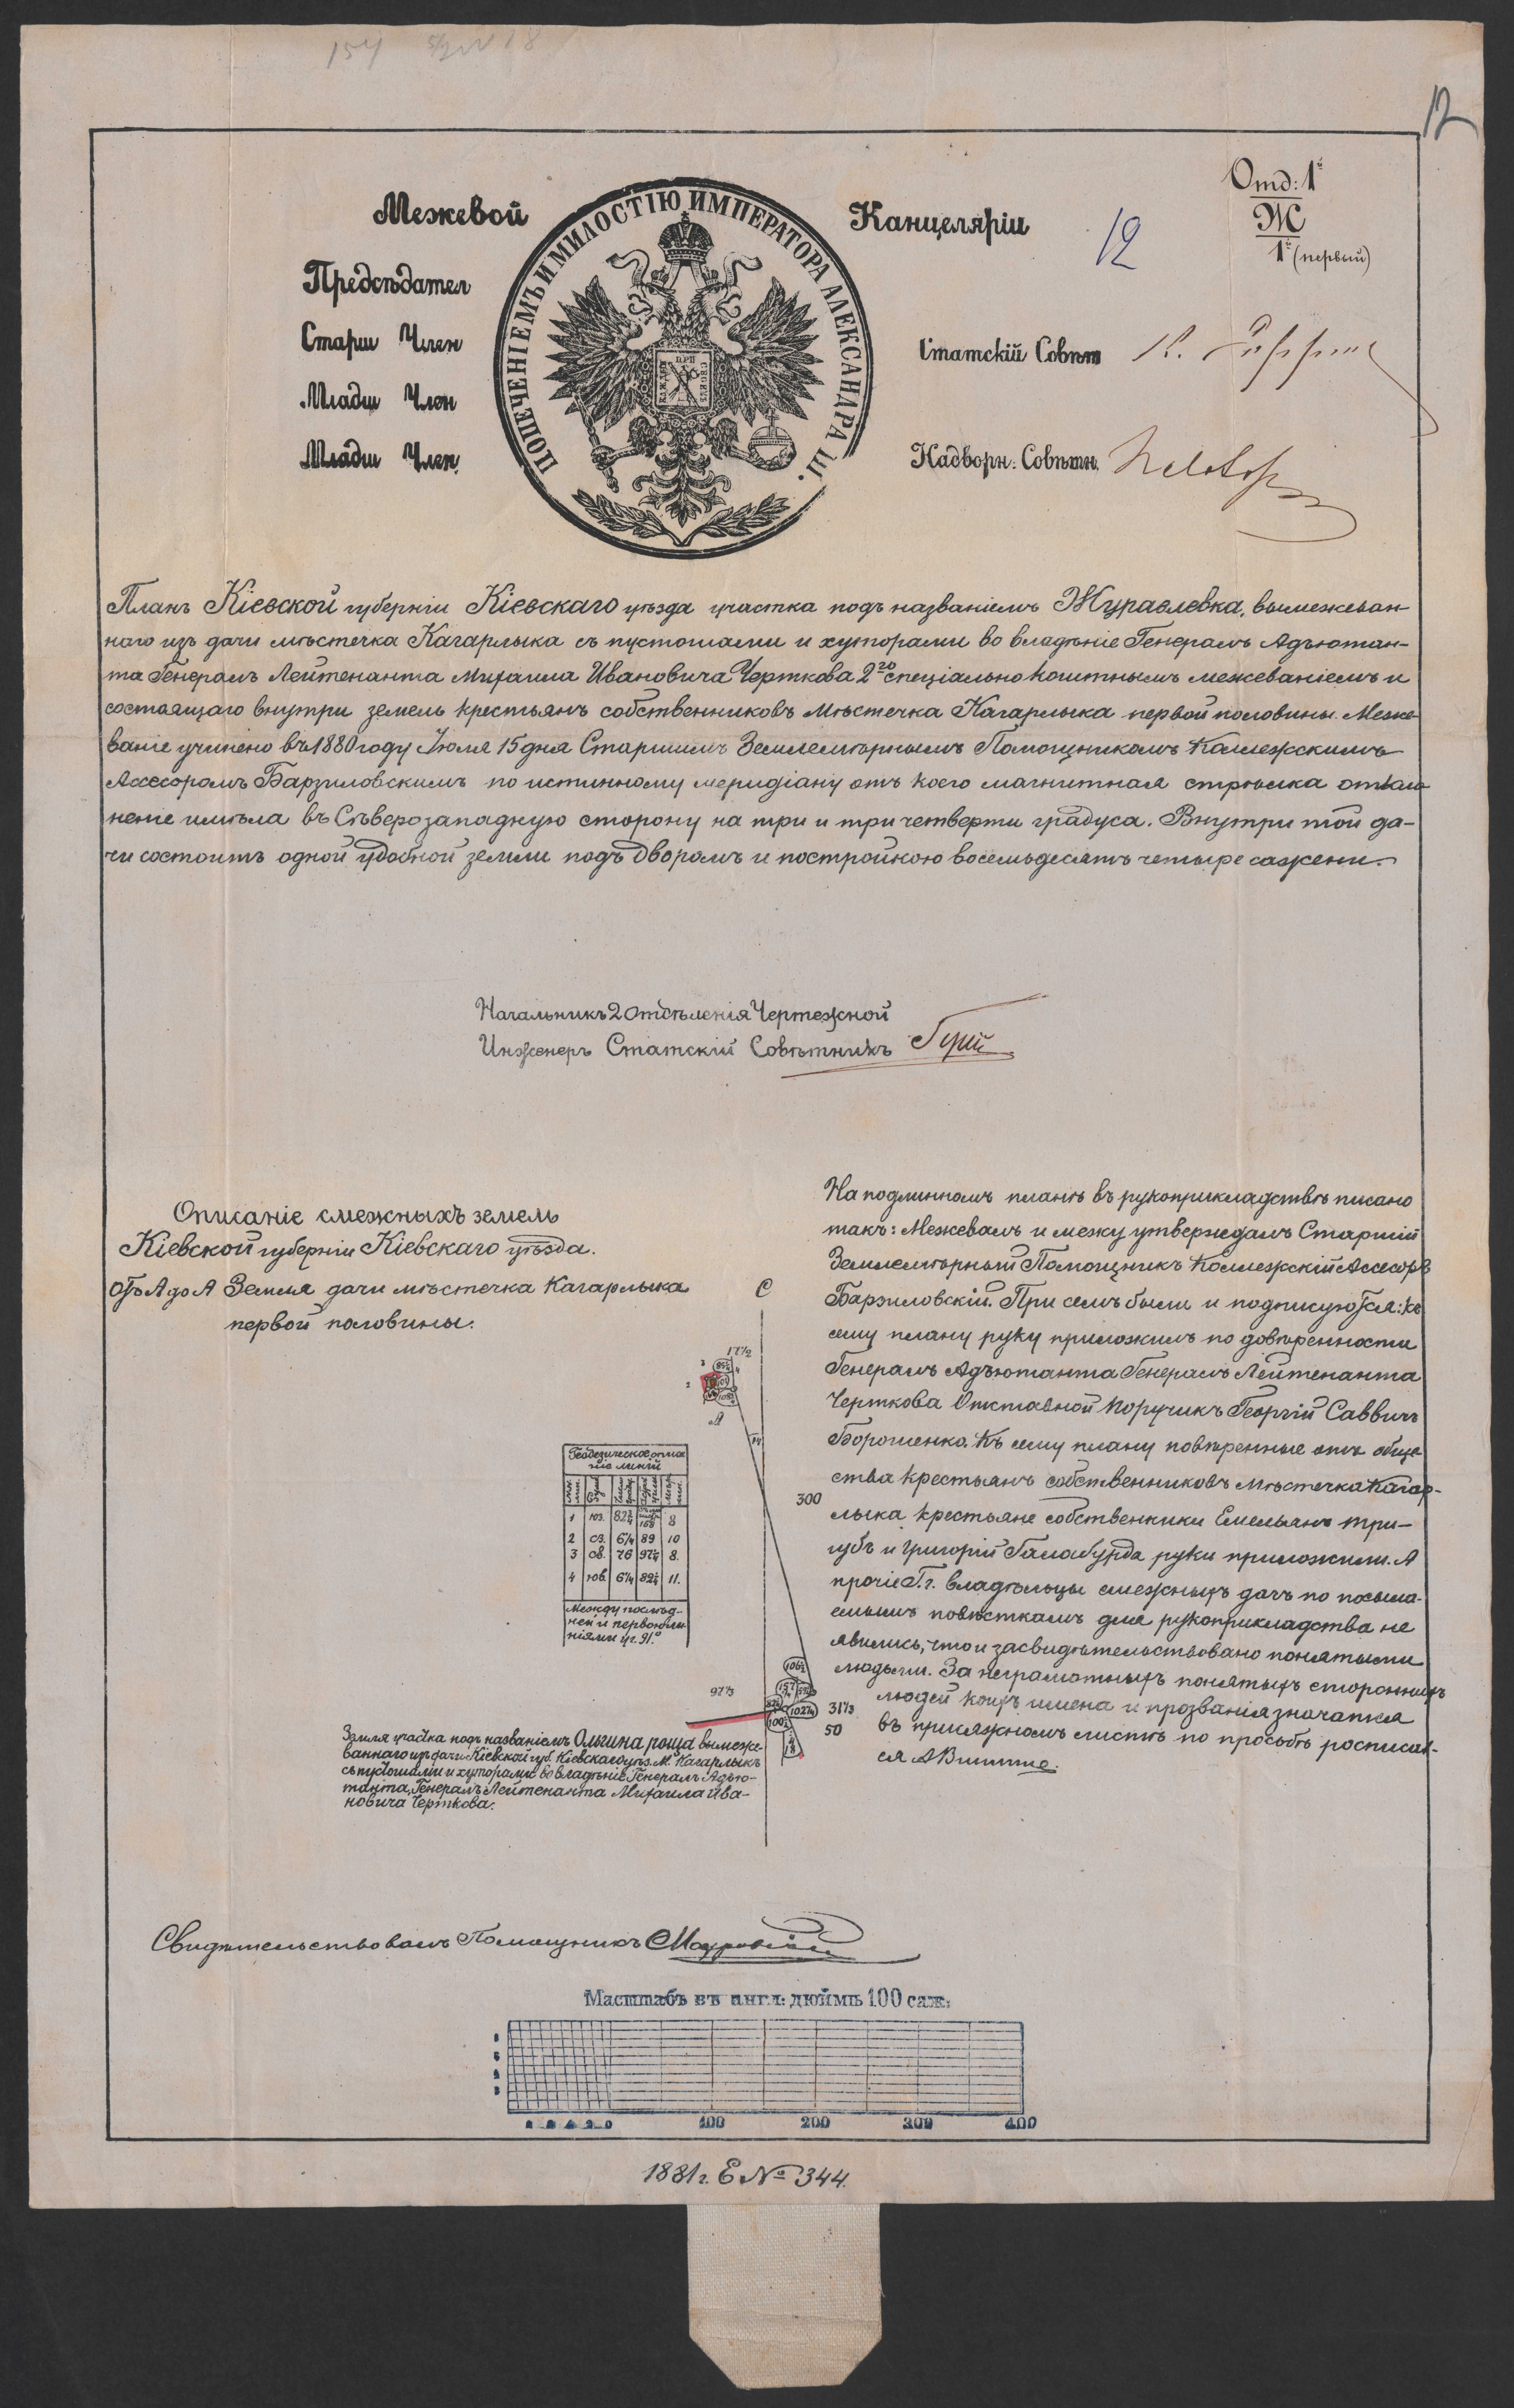 12
Отд: 1й
Ж
1й (первый)
12
Межевой Канцеляріи
ПОПЕЧЕНІЕМЪ И МИЛОСТІЮ ИМПЕРАТОРА АЛЕКСАНДРА III.
Предсѣдател
Старш Член
Младш Член
Младш Член.
Статскій Совѣт
Надворн: Совѣтн.
Планъ Кіевской губерніи Кіевскаго уѣзда участка подъ названіемъ Журавлевка, вымежеван-
наго изъ дачи мѣстечка Кагарлыка съ пустошами и хуторами во владѣніе Генералъ Адъютан-
та Генералъ Лейтенанта Михаила Ивановича Черткова 2го спеціально коштнымъ межеваніемъ и
состоящаго внутри земель крестьянъ собственниковъ Мѣстечка Кагарлыка первой половины. Меже-
ваніе учинено въ 1880 году Іюля 15 дня Старшимъ Землемѣрнымъ Помощникомъ Коллежскимъ
Ассесоромъ Барзиловскимъ по истинному меридіану отъ коего магнитная стрѣлка откло-
неніе имѣла въ Сѣверозападную сторону на три и три четверти градуса. Внутри той да-
чи состоитъ одной удобной земли подъ дворомъ и постройкою восемьдесятъ четыре сажени.
Начальникъ 2 Отдѣленія Чертежной
Инженеръ Статскій Совѣтникъ
Описаніе смежныхъ земель
Кіевской губерніи Кіевскаго уѣзда.
Отъ А до А Земля дачи мѣстечка Кагарлыка
первой половины.
С
17½
А
300
Геодезическое описа
ніе линій
1 юз. 82¾ 168 8
2 сз. 6¼ 89 10
3 св. 76 97¾ 8.
4 юв. 6¼ 82¾ 11.
Между послѣд-
ней и первою ли-
ніями уг. 91°
97⅓
31⅓
50
Земля участка подъ названіемъ Ольгина роща вымеже-
ваннаго изъ дачи Кіевской губ. Кіевскаго уѣз. М. Кагарлыкъ
съ пустошами и хуторами во владѣніе Генералъ-Адъю-
танта, Генералъ Лейтенанта Михаила Ива-
новича Черткова.
На подлинномъ планѣ въ рукоприкладствѣ писано
такъ: Межевалъ и межу утверждалъ Старшій
Землемѣрный Помощникъ Коллежскій Ассесоръ
Барзиловскій. При семъ были и подписуются: къ
сему плану руку приложилъ по довѣренности
Генералъ Адъютанта Генералъ Лейтенанта
Черткова Отставной Поручикъ Георгій Саввичъ
Борошенко. Къ сему плану повѣренные отъ обще
ства крестьянъ собственниковъ мѣстечка Кагар-
лыка крестьяне собственники Емельянъ Три-
губъ и Григорій Галабурда руки приложили. А
прочіе Г.г. владѣльцы смежныхъ дачъ по посыла-
емымъ повѣсткамъ для рукоприкладства не
явились, что и засвидѣтельствовано понятыми
людьми. За неграмотныхъ понятыхъ стороннихъ
людей коихъ имена и прозванія значатся
въ присяжномъ листѣ по просьбѣ росписал-
ся
Свидѣтельствовалъ Помощникъ
Масштабъ въ англ: дюймѣ 100 саж:
100 200 300 400
1881 г. Е № 344.